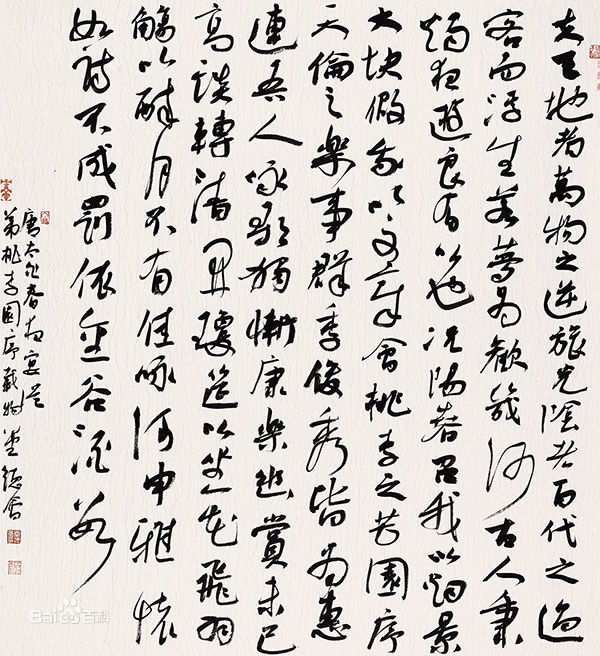 夫天地者萬物之逆旅光陰者百代之過
客而浮生若夢為歡幾何古人秉
燭夜遊良有以也況陽春召我以煙景
大块假我以文章會桃李之芳園序
天倫之樂事群季俊秀皆為惠
連吾人咏歌獨慚康樂幽賞未已
高談轉清開瓊筵以坐花飛羽
觴以醉月不有佳咏何申雅懷
如詩不成罰依金谷酒數
唐太白春夜宴從
弟桃李園序
Bai百科